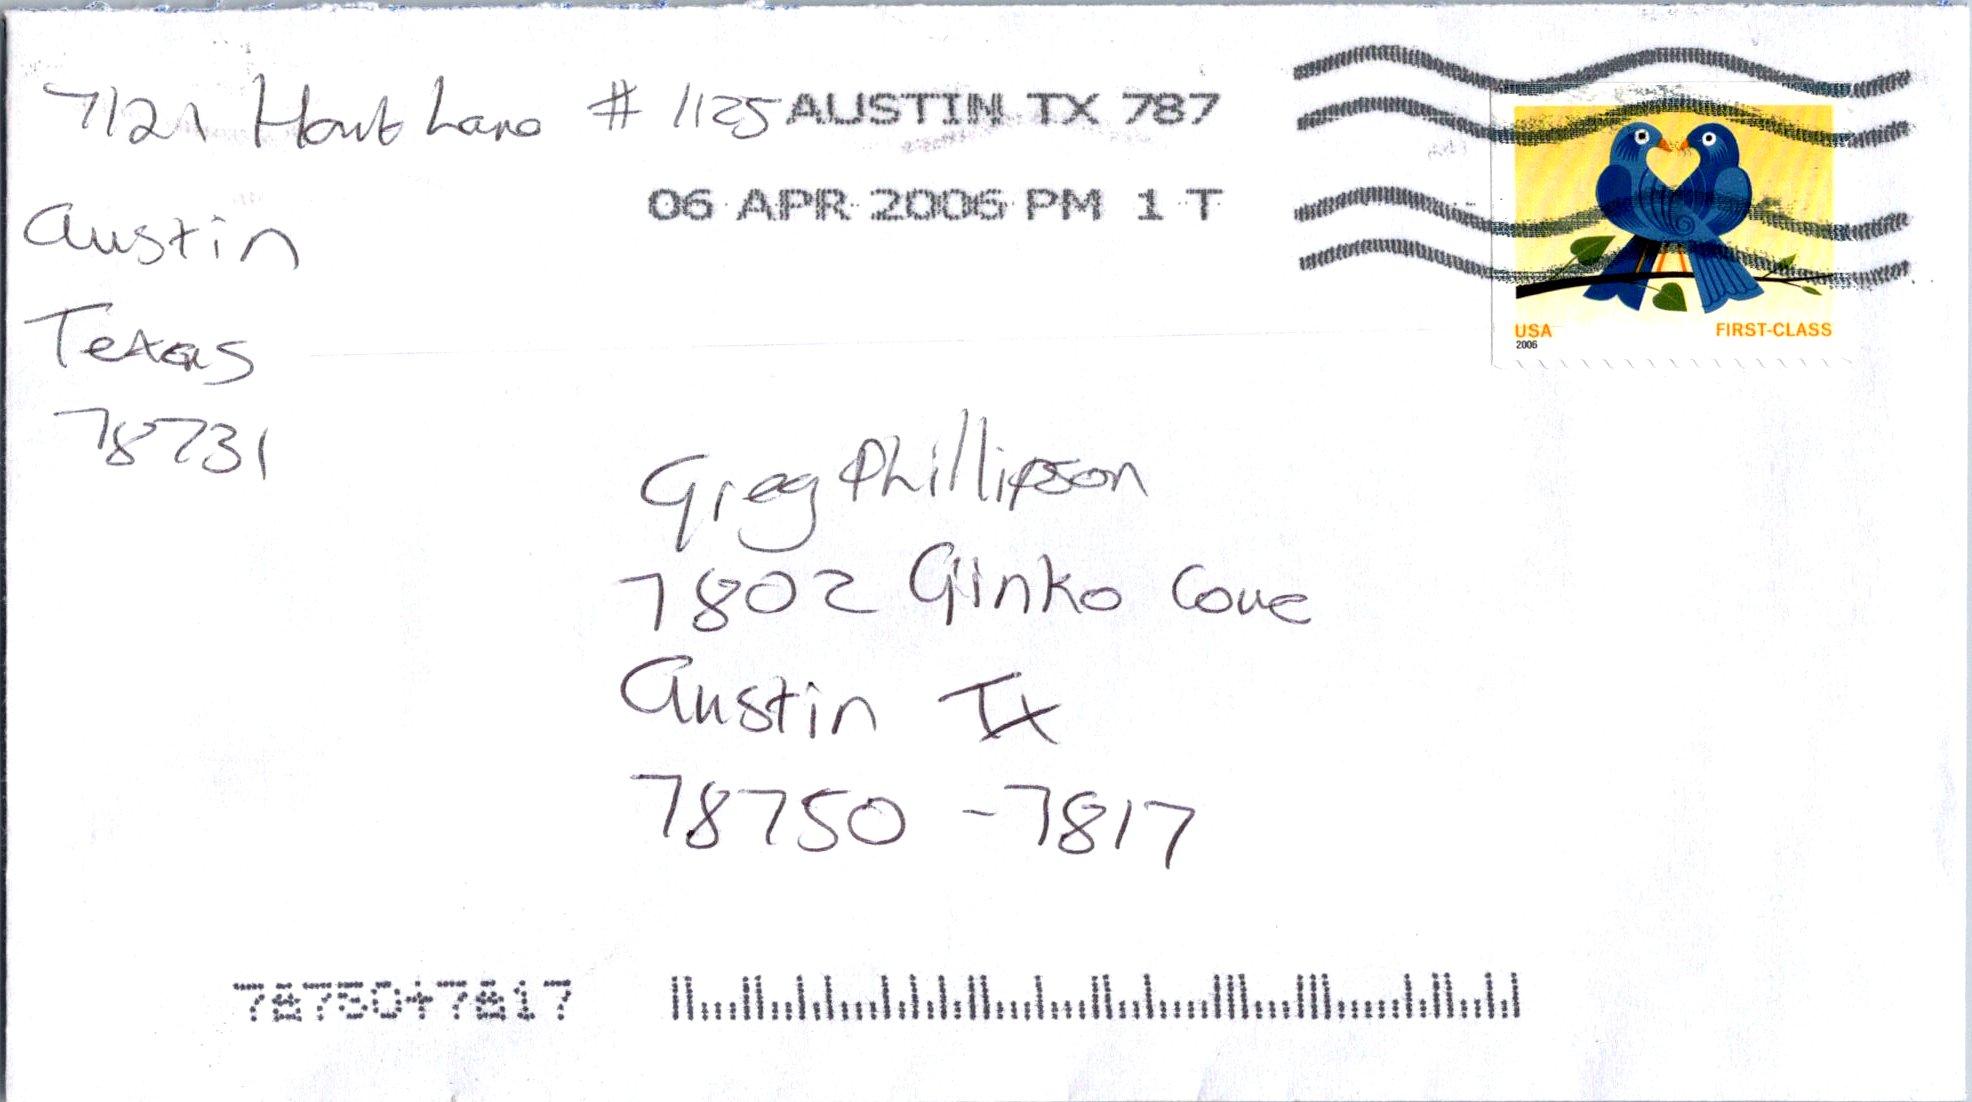 7121 Hart Lane # 1125
AUSTIN TX 787
06 APR 2006 PM 1 T
Austin
Texas
78731
USA
2006
FIRST-CLASS
Greg Phillipson
7802 Ginko Cove
Austin TX
78750 - 7817
78750+7817